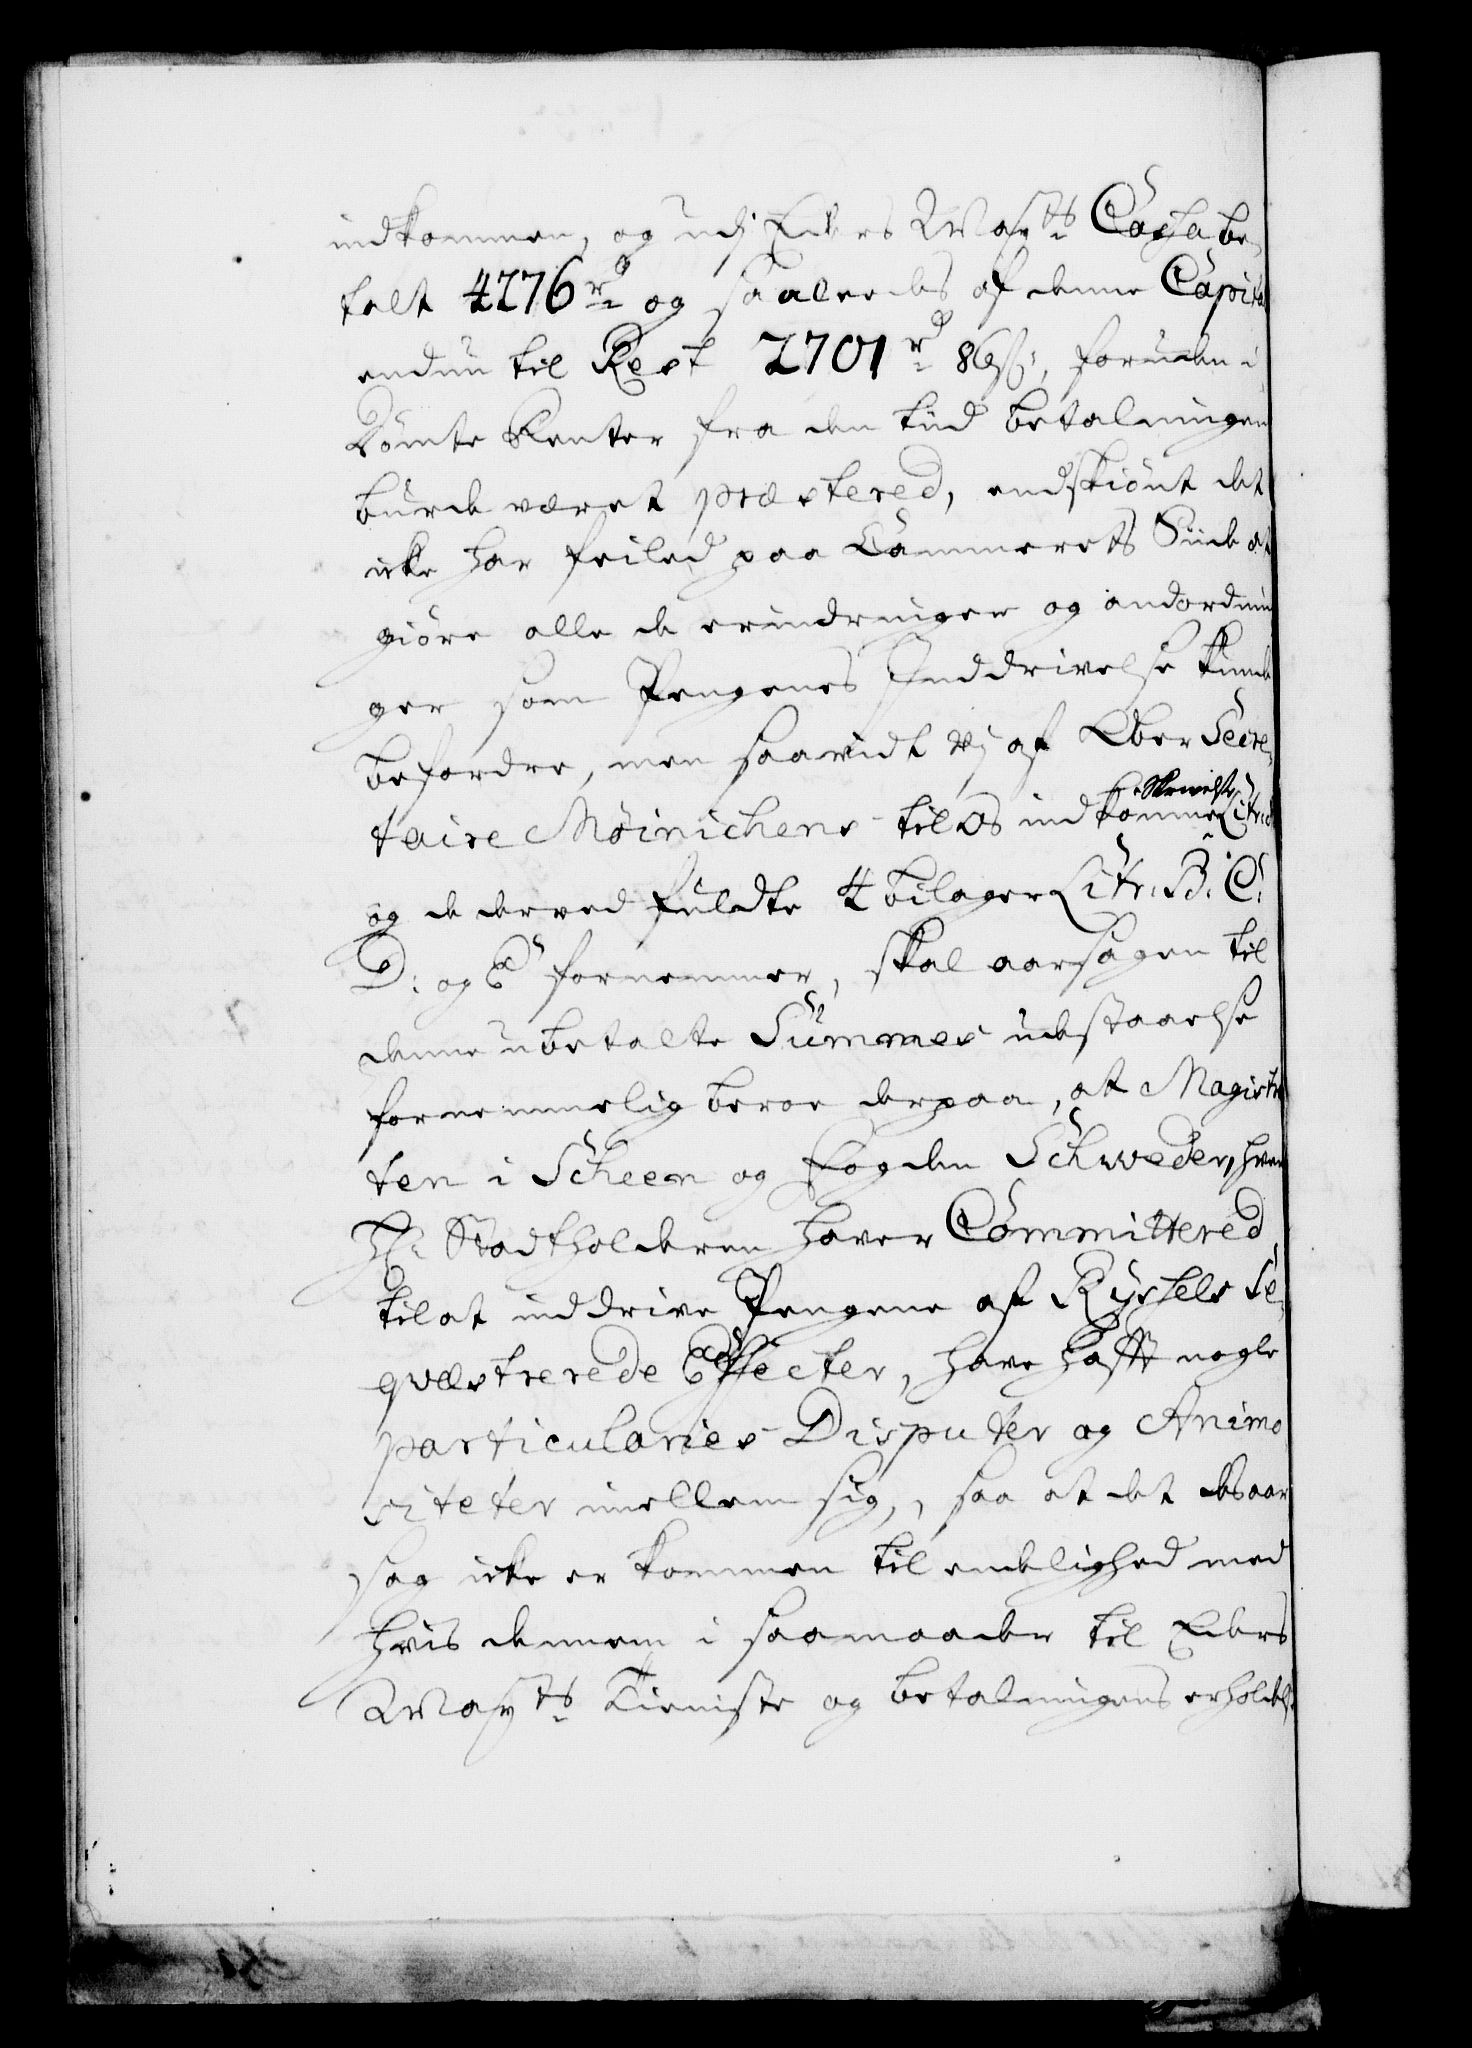 indkommen, og udj Eders Mayts Cassa be-
talt 4276 rd og saaledes af denne Capital
endnu til Rest 2701 rd 86 s:, foruden i
Dömte Renter fra den tiid betalningen
burde været præstered, endskiönt det
icke har feiled paa Cammerets Siide at
giöre alle de erindringer og andordnin
ger som Pengenes Inddrivelse kunde
befordre, men saavidt vj af Ober Secre-
taire Möinichens til os indkomne Skrivelse Litr: A
og de derved fuldte 4 bilager Litr: B: C:
D: og E fornemmer, skal aarsagen til
denne ubetalte Summes udestaaelse
fornemmelig beroe derpaa, at Magistra
ten i Scheen og Fogden Schweder, hvem
Hr Stadtholderen haver Committered
til at inddrive Pengene af Ryssels Se-
qvæstrerede Effecter, have hafft nogle
particularies Disputer og Animo
siteter imellem sig, saa at det desaar
sag icke er kommen til endelighed med
hvis dennem i saamaader til Eders
Mayts Tieniste og betalningens erholdelse